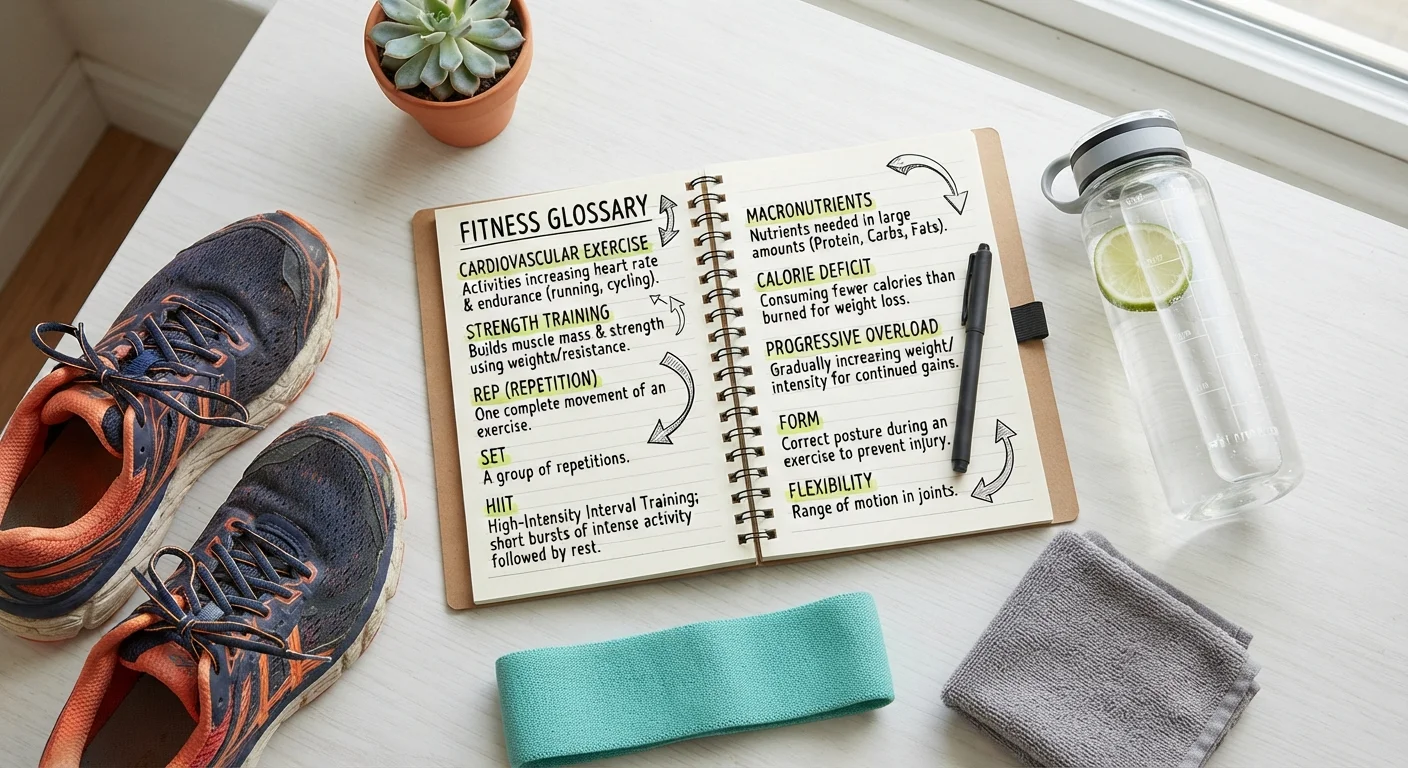 FITNESS GLOSSARY
CARDIOVASCULAR EXERCISE
Activities increasing heart rate
& endurance (running, cycling).
STRENGTH TRAINING
Builds muscle mass & strength
using weights/resistance.
REP (REPETITION)
One complete movement of an
exercise.
SET
A group of repetitions.
HIIT
High-Intensity Interval Training;
short bursts of intense activity
followed by rest.
MACRONUTRIENTS
Nutrients needed in large
amounts (Protein, Carbs, Fats).
CALORIE DEFICIT
Consuming fewer calories than
burned for weight loss.
PROGRESSIVE OVERLOAD
Gradually increasing weight/
intensity for continued gains.
FORM
Correct posture during an
exercise to prevent injury.
FLEXIBILITY
Range of motion in joints.